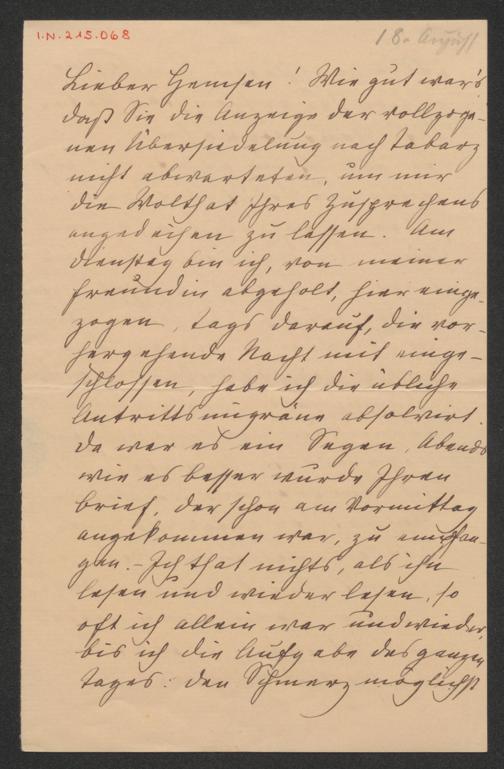 I.N. 215.068
18. August
Lieber Hemsen! Wie gut war's
daß Sie die Anzeige der vollzoge-
nen Übersiedelung nach Tabarz
nicht abwarteten, um mir
die Wolthat Ihres Zusprechens
angedeihen zu lassen. Am
Dienstag bin ich, von meiner
Freundin abgeholt, hier einge-
zogen, tags darauf, die vor-
hergehende Nacht mit einge-
schlossen, habe ich die übliche
Antrittsmigräne absolvirt.
Da war es ein Segen, Abends
wie es besser wurde Ihren
Brief, der schon am Vormittag
angekommen war, zu empfan-
gen. – Ich that nichts, als ihn
lesen und wieder lesen, so
oft ich allein war und wieder,
bis ich die Aufgabe des ganzen
Tages: den Schmerz möglichst